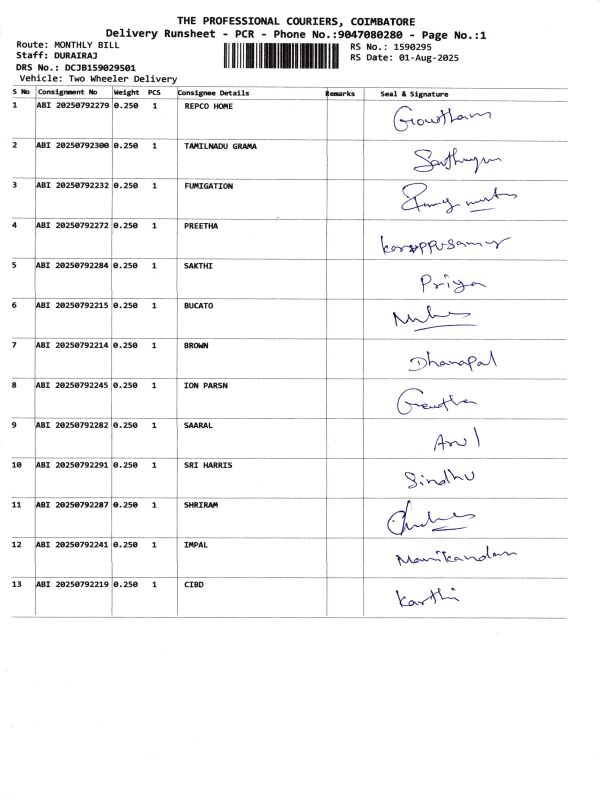 THE PROFESSIONAL COURIERS, COIMBATORE
Delivery Runsheet - PCR - Phone No.:9047080280 - Page No.:1
Route: MONTHLY BILL RS No.: 1590295
Staff: DURAIRAJ RS Date: 01-Aug-2025
DRS No.: DCJB159029501
Vehicle: Two Wheeler Delivery
S No Consignment No Weight PCS Consignee Details Remarks Seal & Signature
1 ABI 20250792279 0.250 1 REPCO HOME Gowtham
2 ABI 20250792300 0.250 1 TAMILNADU GRAMA
3 ABI 20250792232 0.250 1 FUMIGATION
4 ABI 20250792272 0.250 1 PREETHA karuppusamy
5 ABI 20250792284 0.250 1 SAKTHI Priya
6 ABI 20250792215 0.250 1 BUCATO
7 ABI 20250792214 0.250 1 BROWN Dhanapal
8 ABI 20250792245 0.250 1 ION PARSN
9 ABI 20250792282 0.250 1 SAARAL Arul
10 ABI 20250792291 0.250 1 SRI HARRIS Sindhu
11 ABI 20250792287 0.250 1 SHRIRAM
12 ABI 20250792241 0.250 1 IMPAL Manikandan
13 ABI 20250792219 0.250 1 CIBD karthi